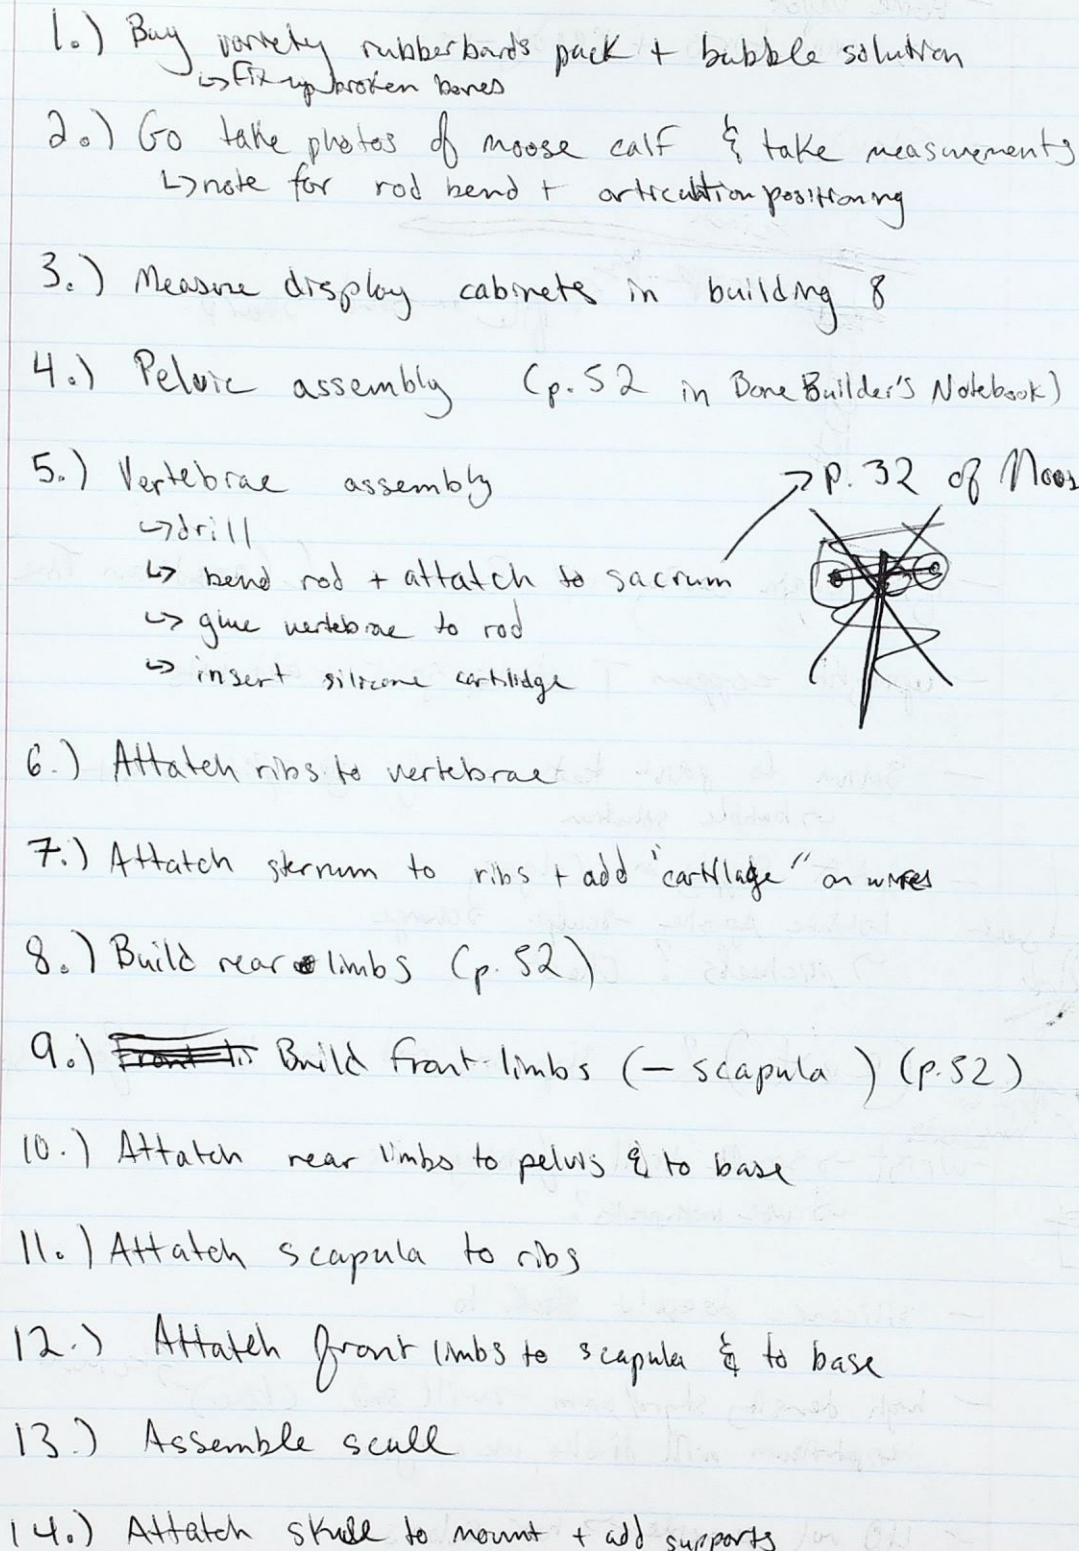 1.) Buy variety rubberbands pack + bubble solution
↳ Fix up broken bones
2.) Go take photos of moose calf & take measurements
↳ note for rod bend + articultion positioning
3.) Measure display cabinets in building 8
4.) Pelvic assembly (p. 52 in Bone Builder's Notebook)
5.) Vertebrae assembly
p. 32 of Moos
↳ drill
↳ bend rod + attatch to sacrum
↳ glue vertebrae to rod
↳ insert silicone cartilidge
6.) Attatch ribs to vertebrae
7.) Attatch sternum to ribs + add "cartilage" on wires
8.) Build rear limbs (p. 52)
9.) Build front limbs (- scapula) (p. 52)
10.) Attatch rear limbs to pelvis & to base
11.) Attatch scapula to ribs
12.) Attatch front limbs to scapula & to base
13.) Assemble scull
14.) Attatch skull to mount + add supports